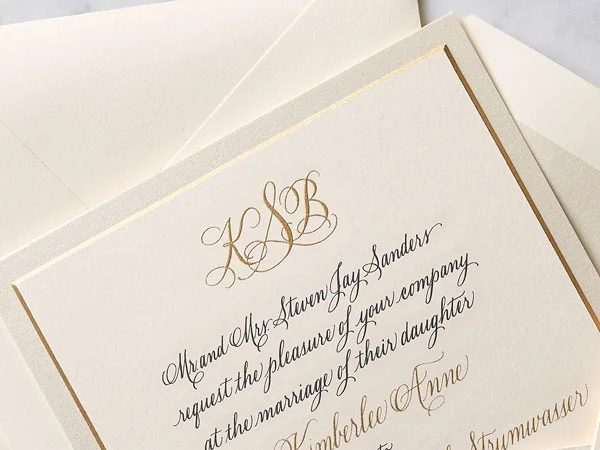 KSB
Mr. and Mrs. Steven Jay Sanders
request the pleasure of your company
at the marriage of their daughter
Kimberlee Anne
to
Strumwasser